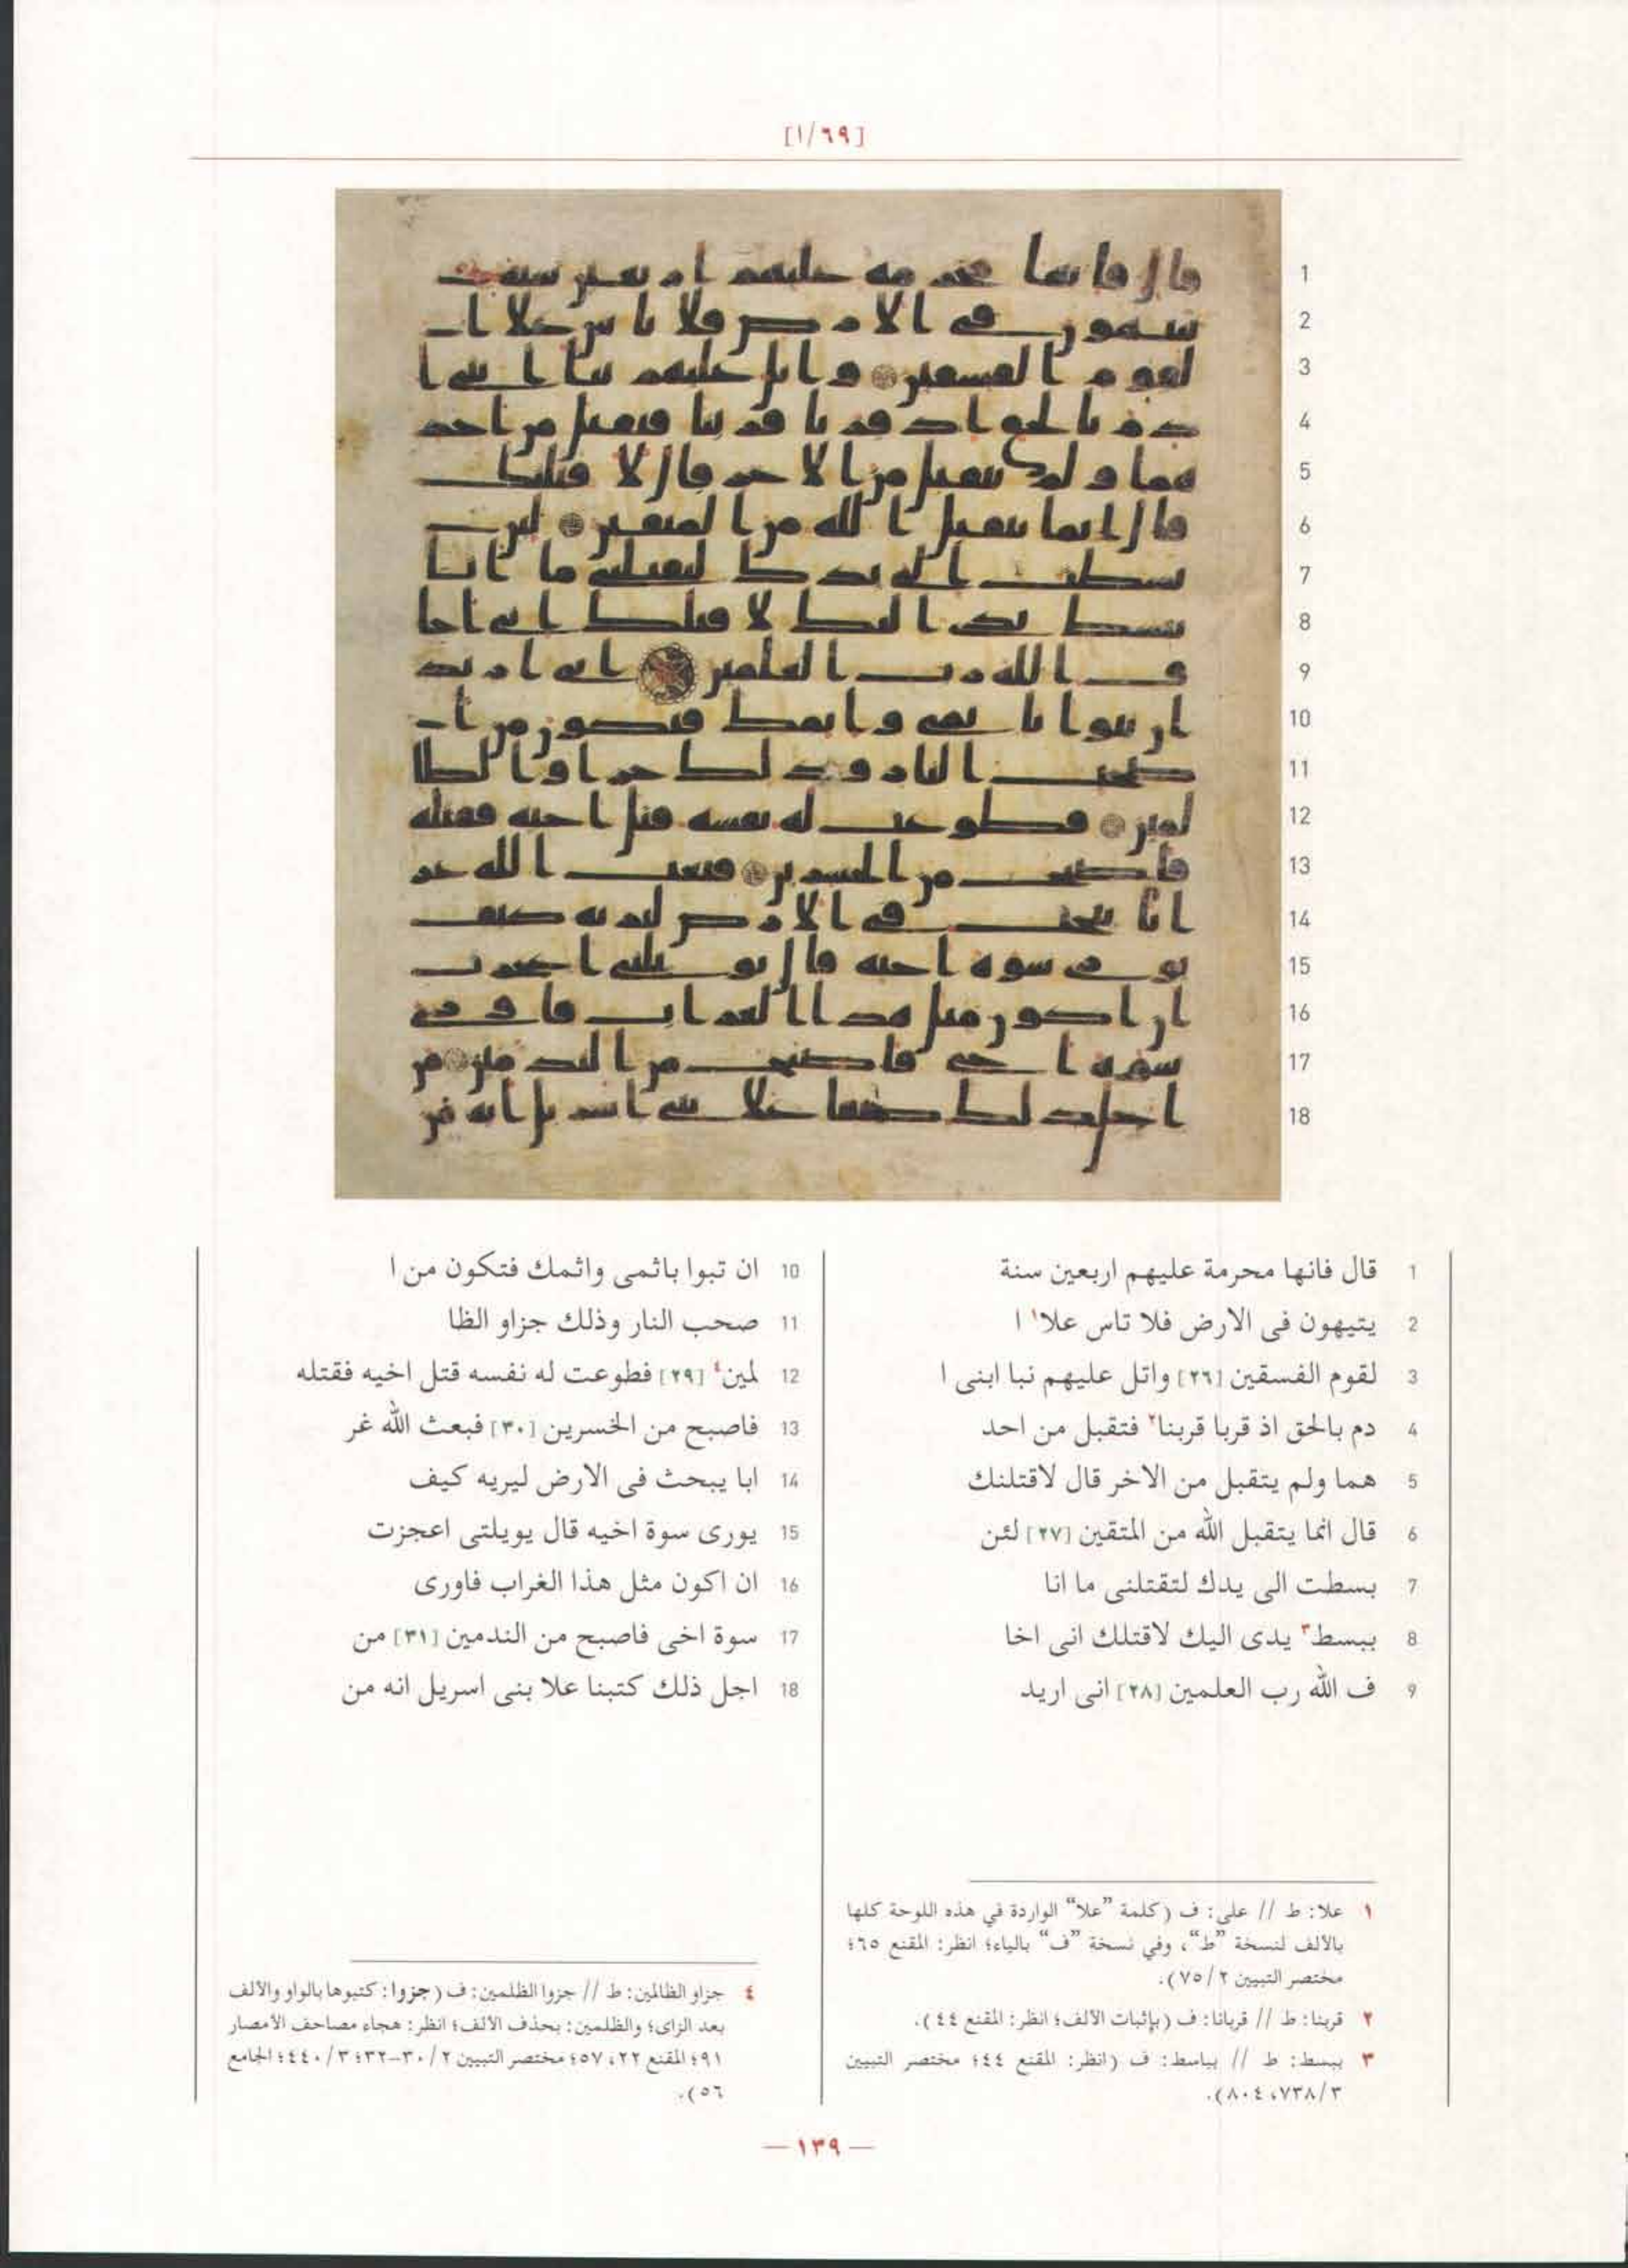 [١/٦٩]
1 قال فانها محرمة عليهم اربعين سنة
2 يتيهون فى الارض فلا تاس علا١ ا
3 لقوم الفسقين [٢٦] واتل عليهم نبا ابنى ا
4 دم بالحق اذ قربا قربنا٢ فتقبل من احد
5 هما ولم يتقبل من الاخر قال لاقتلنك
6 قال انما يتقبل الله من المتقين [٢٧] لئن
7 بسطت الى يدك لتقتلنى ما انا
8 ببسط٣ يدى اليك لاقتلك انى اخا
9 ف الله رب العلمين [٢٨] انى اريد
10 ان تبوا باثمى واثمك فتكون من ا
11 صحب النار وذلك جزاو الظا
12 لمين٤ [٢٩] فطوعت له نفسه قتل اخيه فقتله
13 فاصبح من الخسرين [٣٠] فبعث الله غر
14 ابا يبحث فى الارض ليريه كيف
15 يورى سوة اخيه قال يويلتى اعجزت
16 ان اكون مثل هذا الغراب فاورى
17 سوة اخى فاصبح من الندمين [٣١] من
18 اجل ذلك كتبنا علا بنى اسريل انه من
١ علا: ط // على: ف (كلمة "علا" الواردة في هذه اللوحة كلها
بالألف لنسخة "ط"، وفي نسخة "ف" بالياء؛ انظر: المقنع ٦٥؛
مختصر التبيين ٧٥/٢).
٢ قربنا: ط // قربانا: ف (بإثبات الألف؛ انظر: المقنع ٤٤).
٣ ببسط: ط // بباسط: ف (انظر: المقنع ٤٤؛ مختصر التبيين
٧٣٨/٣، ٨٠٤).
٤ جزاو الظالمين: ط // جزوا الظلمين: ف (جزوا: كتبوها بالواو والألف
بعد الزاى؛ والظلمين: بحذف الألف؛ انظر: هجاء مصاحف الأمصار
٩١؛ المقنع ٢٢، ٥٧؛ مختصر التبيين ٣٠/٢-٣٢؛ ٤٤٠/٣؛ الجامع
٥٦).
— ١٣٩ —